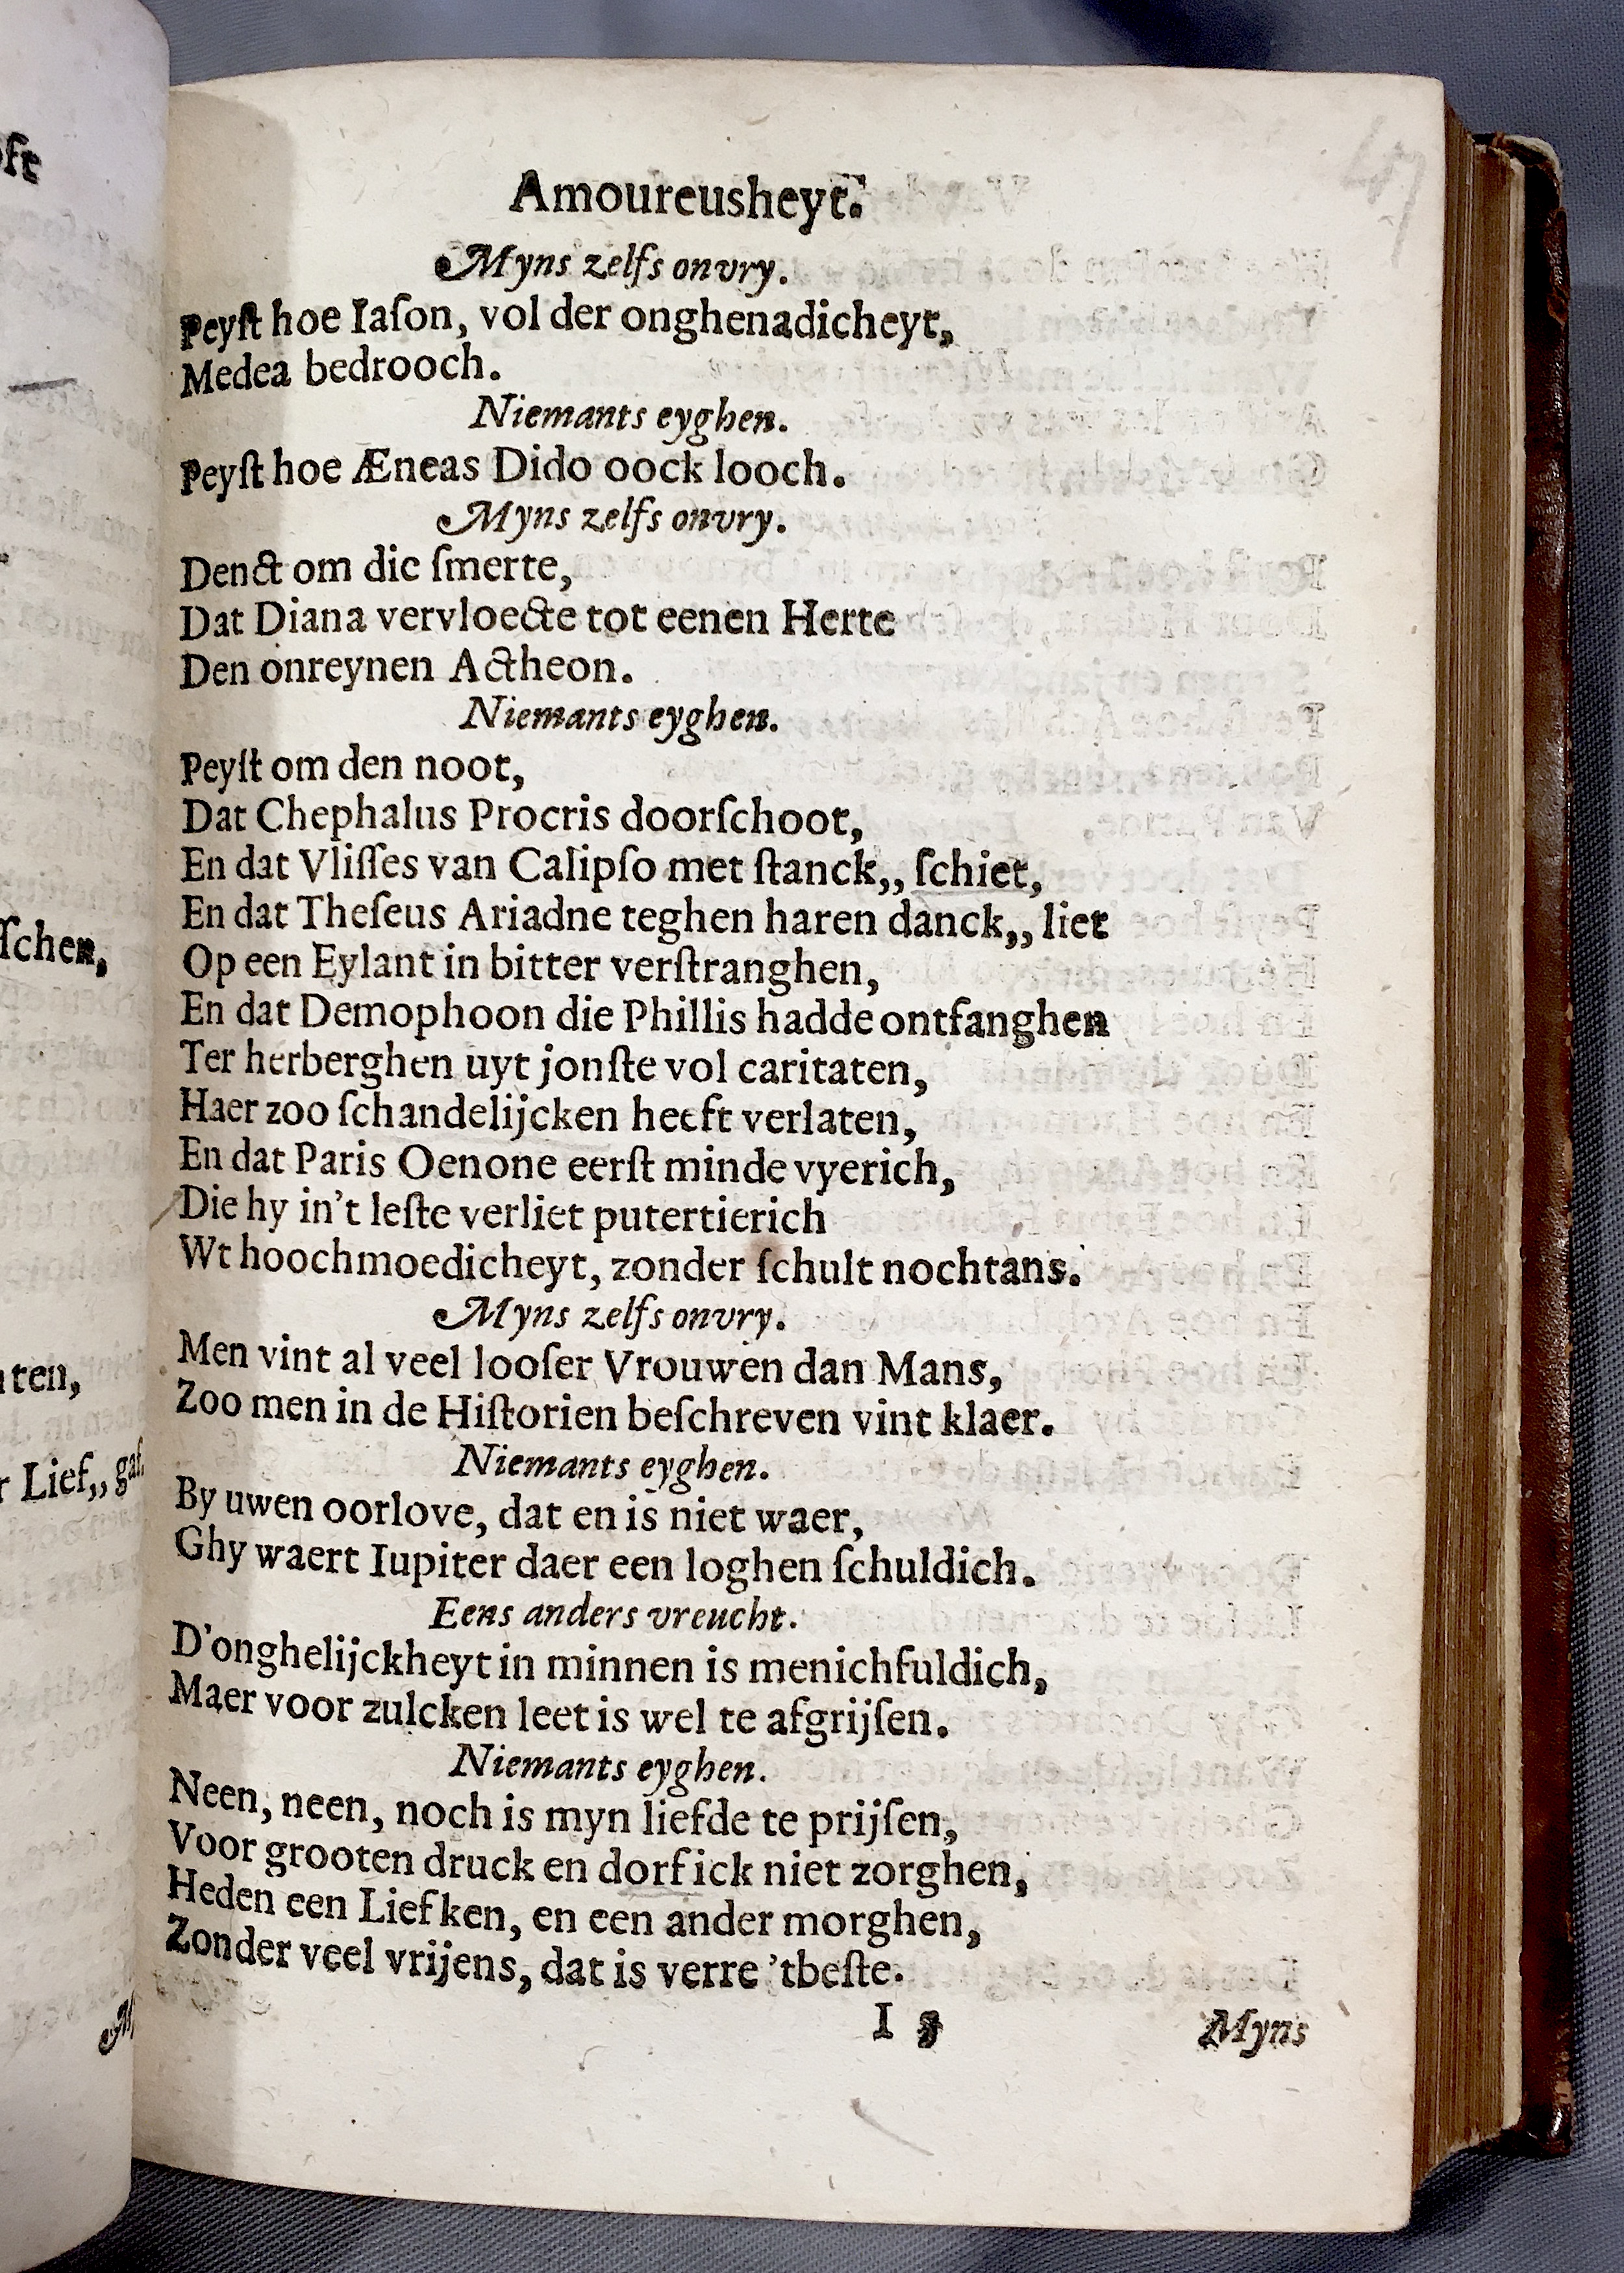 Amoureusheyt.
Myns zelfs onvry.
Peyſt hoe Iaſon, vol der onghenadicheyt,
Medea bedrooch.
Niemants eyghen.
Peyſt hoe Æneas Dido oock looch.
Myns zelfs onvry.
Denct om die ſmerte,
Dat Diana vervloecte tot eenen Herte
Den onreynen Actheon.
Niemants eyghen.
Peyſt om den noot,
Dat Chephalus Procris doorſchoot,
En dat Vliſſes van Calipſo met ſtanck,, ſchiet,
En dat Theſeus Ariadne teghen haren danck,, liet
Op een Eylant in bitter verſtranghen,
En dat Demophoon die Phillis hadde ontfanghen
Ter herberghen uyt jonſte vol caritaten,
Haer zoo ſchandelijcken heeft verlaten,
En dat Paris Oenone eerſt minde vyerich,
Die hy in't leſte verliet putertierich
Wt hoochmoedicheyt, zonder ſchult nochtans.
Myns zelfs onvry.
Men vint al veel looſer Vrouwen dan Mans,
Zoo men in de Hiſtorien beſchreven vint klaer.
Niemants eyghen.
By uwen oorlove, dat en is niet waer,
Ghy waert Iupiter daer een loghen ſchuldich.
Eens anders vreucht.
D'onghelijckheyt in minnen is menichfuldich,
Maer voor zulcken leet is wel te afgrijſen.
Niemants eyghen.
Neen, neen, noch is myn liefde te prijſen,
Voor grooten druck en dorf ick niet zorghen,
Heden een Liefken, en een ander morghen,
Zonder veel vrijens, dat is verre 'tbeſte.
I
Myns
ſchen,
Lief,,